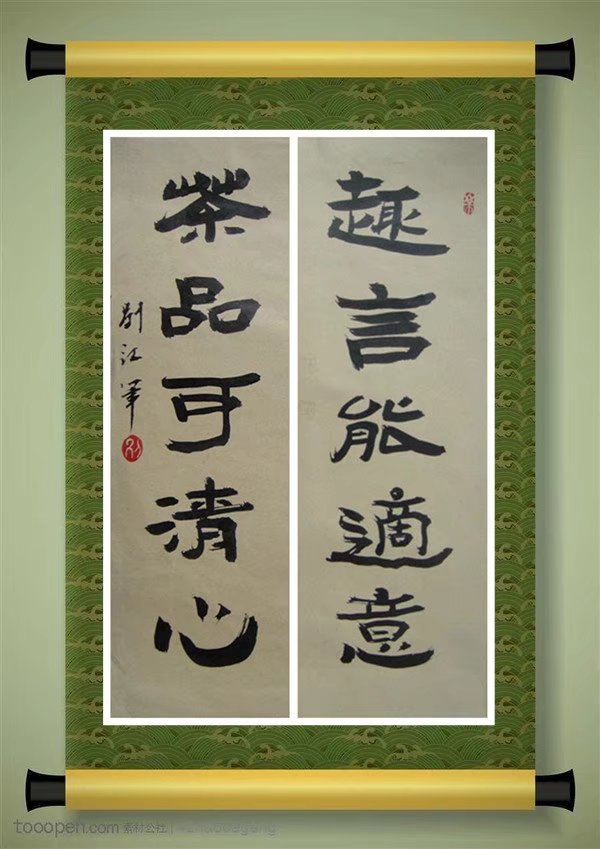 趣言能適意
茶品可清心
刘江军
tooopen.com 素材公社